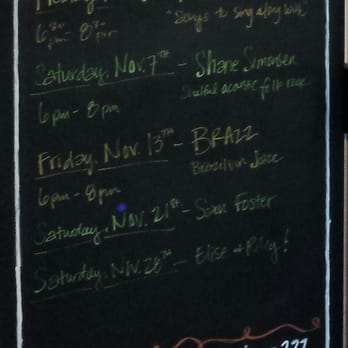 "Songs to sing along with"
6:30pm - 8:30pm
Saturday, Nov. 7TH - Shane Simonsen
Soulful acoustic folk rock
6pm - 8pm
Friday, Nov. 13TH - BRAZZ
Brazilian Jazz
6pm - 8pm
Saturday, Nov. 21st - Sam Foster
Saturday, Nov. 28TH - Elise + Riley!